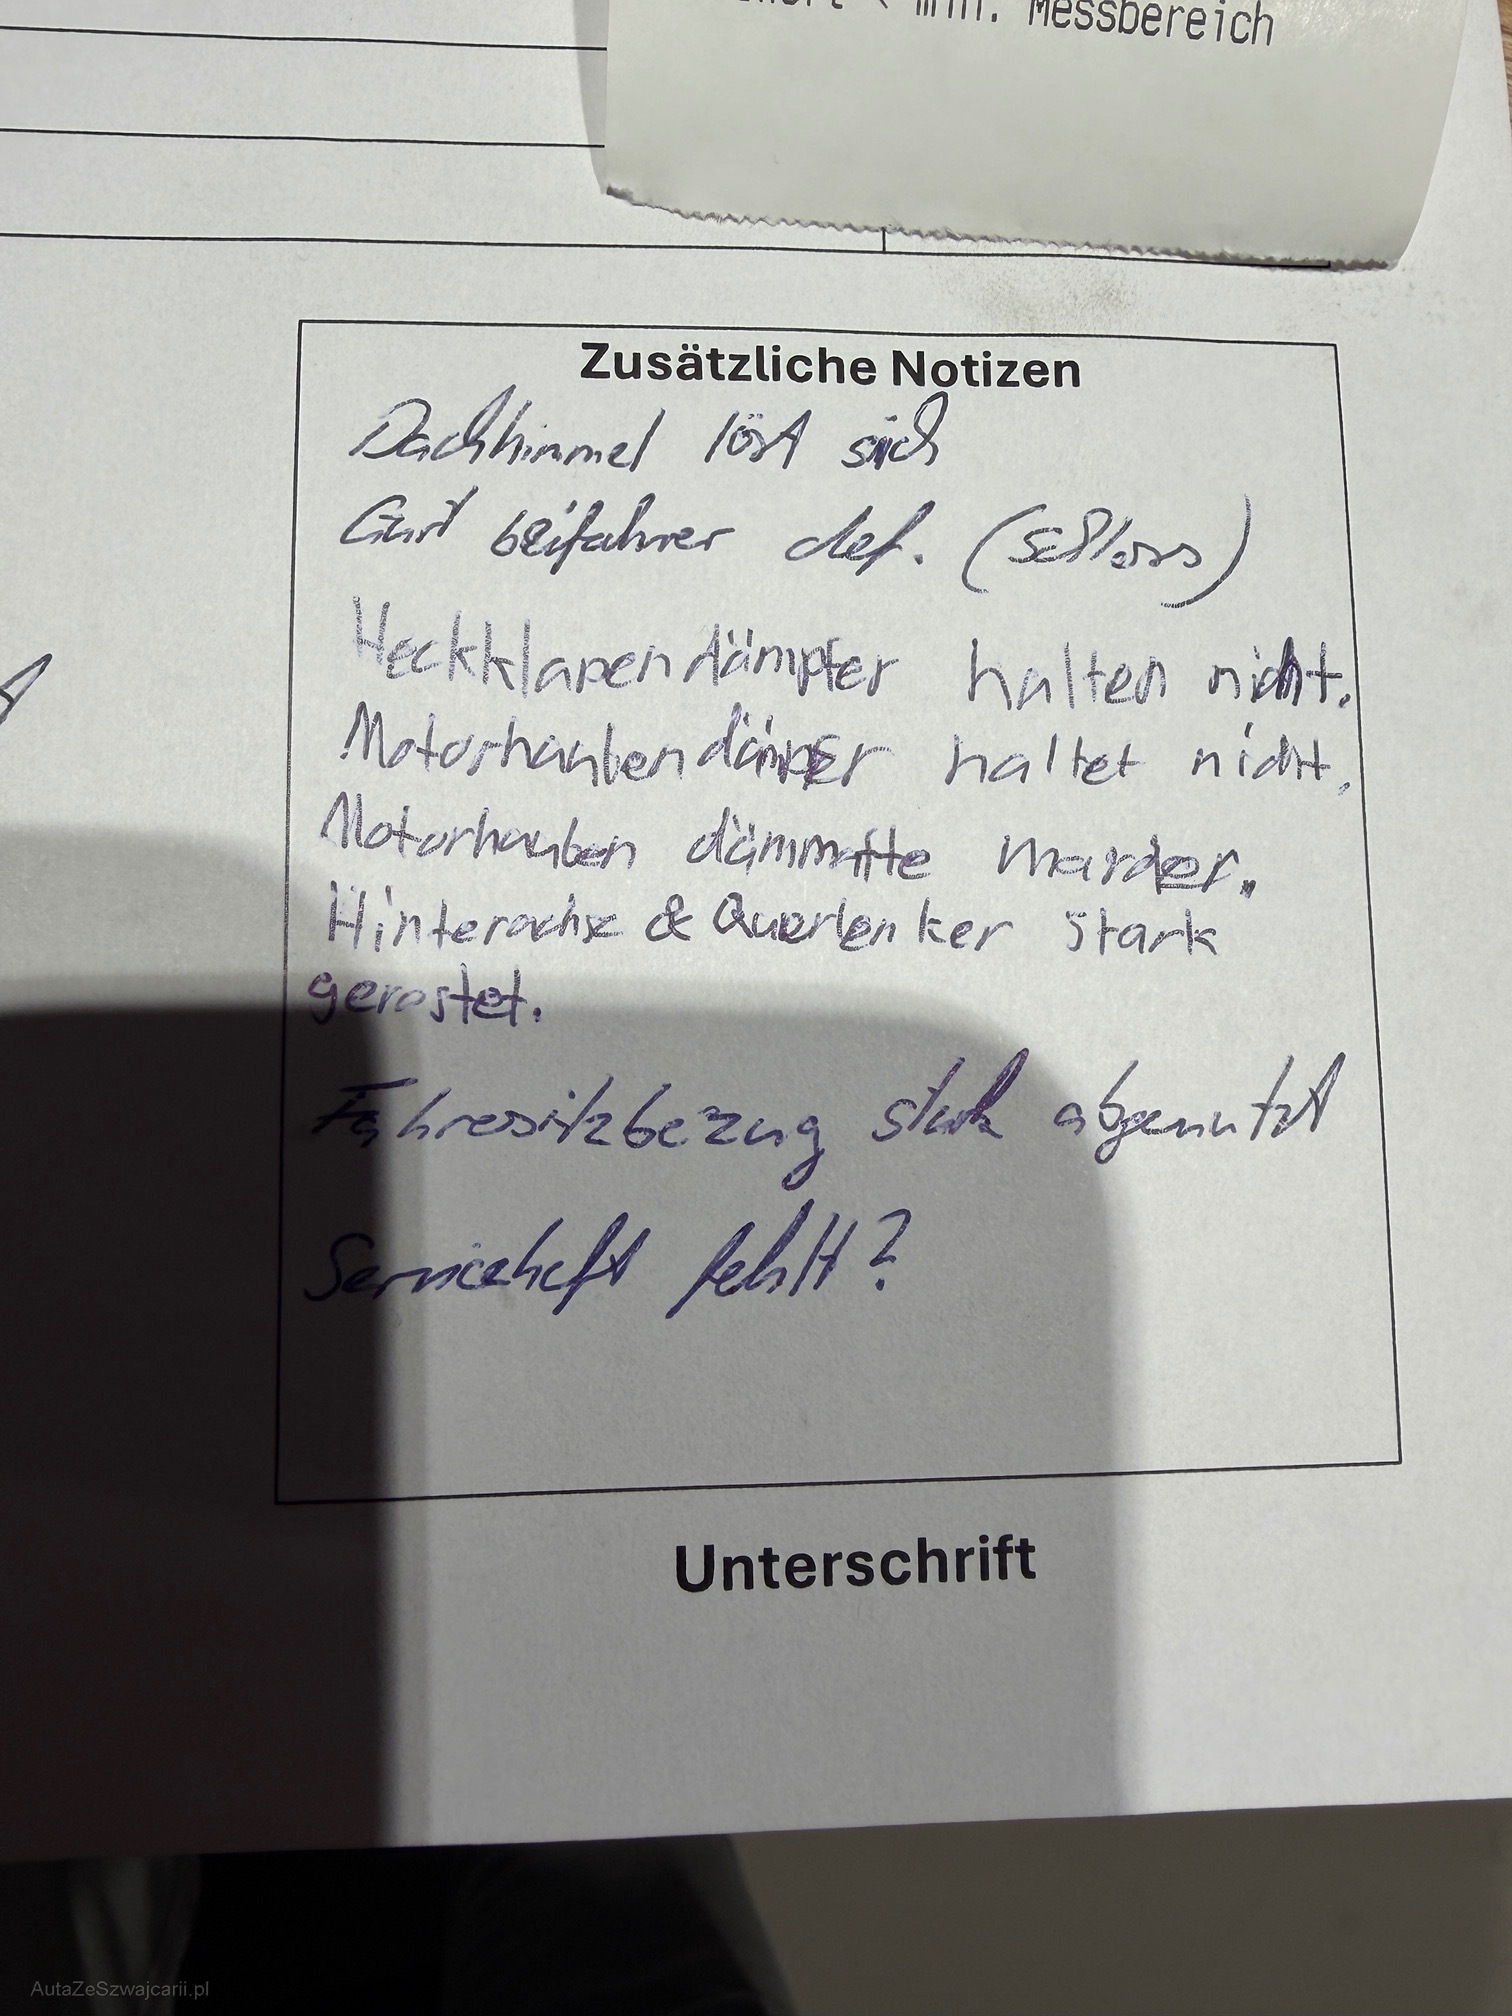 min. Messbereich
Zusätzliche Notizen
Dachhimmel löst sich
Gurt beifahrer def. (Schloss)
Heckklapendämpfer halten nicht.
Motorhaubendämpfer haltet nicht.
Motorhauben dämmatte marder.
Hinterachse & Querlenker stark
gerostet.
Fahrersitzbezug stark abgenutzt
Serviceheft fehlt?
Unterschrift
AutaZeSzwajcarii.pl